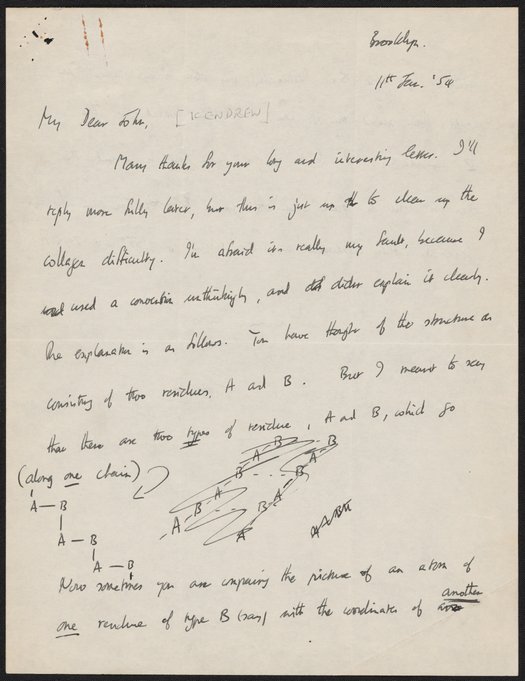 Brooklyn.
11th Jan. '54
My Dear John, [KENDREW]
Many thanks for your long and interesting letter. I'll
reply more fully later, but this is just to clear up the
collagen difficulty. I'm afraid its really my fault, because I
used a convention unthinkingly, and didnt explain it clearly.
The explanation is as follows. You have thought of the structure as
consisting of two residues, A and B. But I meant to say
that there are two types of residue, A and B, which go
(along one chain)
A - B
A - B
A - B
A - B - A - B - A - B
A B - A - B - A - B
A
Now sometimes you are comparing the picture of an atom of
one residue of type B (say) with the coordinates of another